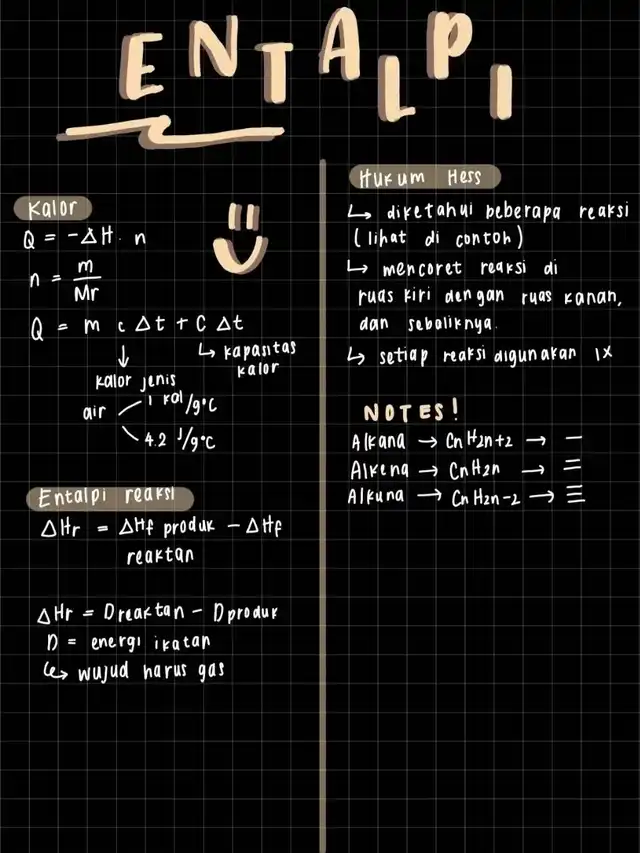 ENTALPI
Kalor
Q = -ΔH . n
n = m/Mr
Q = m c Δt + C Δt
↓ ↳ kapasitas
kalor
kalor jenis
air 1 kal/g°C
4.2 J/g°C
Entalpi reaksi
ΔHr = ΔHf produk - ΔHf
reaktan
ΔHr = Dreaktan - Dproduk
D = energi ikatan
↳ wujud harus gas
Hukum Hess
↳ diketahui beberapa reaksi
(lihat di contoh)
↳ mencoret reaksi di
ruas kiri dengan ruas kanan,
dan seboliknya.
↳ setiap reaksi digunakan 1x
NOTES!
Alkana → CnH2n+2 → —
Alkena → CnH2n → =
Alkuna → CnH2n-2 → ≡